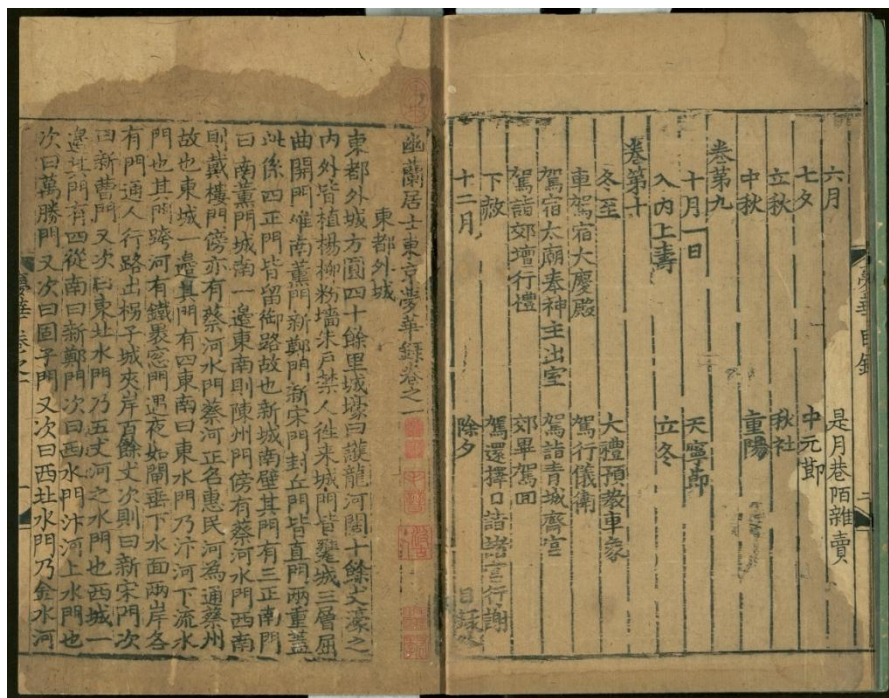 六月　是月巷陌雜賣
七夕　中元節
立秋　秋社
中秋　重陽
卷第九
十月一日　天寧節
入內上壽　立冬
卷第十
冬至　大禮預教車象
車駕宿大慶殿　駕行儀衛
駕宿太廟奉神主出室　駕詣青城齋宮
駕詣郊壇行禮　郊畢駕回
下赦　駕還擇日詣諸宮行謝
十二月　除夕　目錄
夢華目錄　二
幽蘭居士東京夢華錄卷之一
東都外城
東都外城方圓四十餘里城壕曰護龍河闊十餘丈濠之
內外皆植楊柳粉墻朱戶禁人徃來城門皆甕城三層屈
曲開門唯南薰門新鄭門新宋門封丘門皆直門兩重蓋
此係四正門皆留御路故也新城南壁其門有三正南門
曰南薰門城南一邊東南則陳州門傍有蔡河水門西南
則戴樓門傍亦有蔡河水門蔡河正名惠民河為通蔡州
故也東城一邊其門有四東南曰東水門乃汴河下流水
門也其門跨河有鐵裹窓門遇夜如閘垂下水面兩岸各
有門通人行路出拐子城夾岸百餘丈次則曰新宋門次
曰新曹門又次曰東北水門乃五丈河之水門也西城一
邊其門有四從南曰新鄭門次曰西水門汴河上水門也
次曰萬勝門又次曰固子門又次曰西北水門乃金水河
夢華　卷之一　一